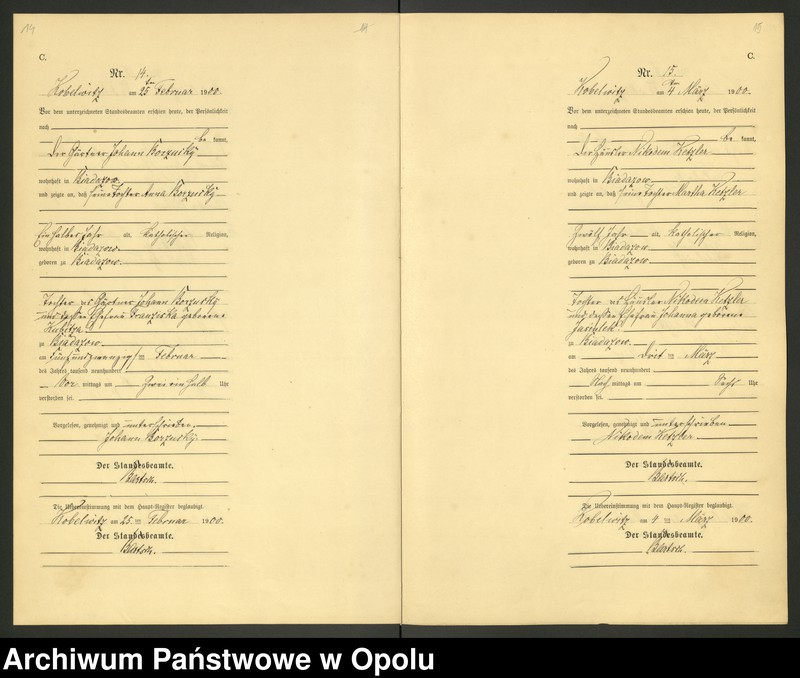 14
14
C.
Nr. 14.
Kobelwitz am 25ten Februar 1900.
Vor dem unterzeichneten Standesbeamten erschien heute, der Persönlichkeit
nach
be kannt,
der Gärtner Johann
wohnhaft in Biadazow
und zeigte an, daß seine Tochter Anna
Ein halbes Jahr alt, katholischer Religion,
wohnhaft in Biadazow
geboren zu Biadazow
Tochter des Gärtner Johann
und dessen Ehefrau Franziska geborene
zu Biadazow
am fünfundzwanzigsten Februar
des Jahres tausend neunhundert
Vor mittags um Zwei ein halb Uhr
verstorben sei.
Vorgelesen, genehmigt und unterschrieben.
Johann
Der Standesbeamte.
Die Uebereinstimmung mit dem Haupt-Register beglaubigt.
Kobelwitz am 25ten Februar 1900.
Der Standesbeamte.
15
C.
Nr. 15.
Kobelwitz am 4ten März 1900.
Vor dem unterzeichneten Standesbeamten erschien heute, der Persönlichkeit
nach
be kannt,
der Häusler Nikodem Ketzler
wohnhaft in Biadazow
und zeigte an, daß seine Tochter Martha Ketzler
Zwölf Jahr alt, katholischer Religion,
wohnhaft in Biadazow
geboren zu Biadazow
Tochter des Häusler Nikodem Ketzler
und dessen Ehefrau Johanna geborene
zu Biadazow
am Dritten März
des Jahres tausend neunhundert
Nach mittags um Sechs Uhr
verstorben sei.
Vorgelesen, genehmigt und unterschrieben.
Nikodem Ketzler
Der Standesbeamte.
Die Uebereinstimmung mit dem Haupt-Register beglaubigt.
Kobelwitz am 4ten März 1900.
Der Standesbeamte.
Archiwum Państwowe w Opolu